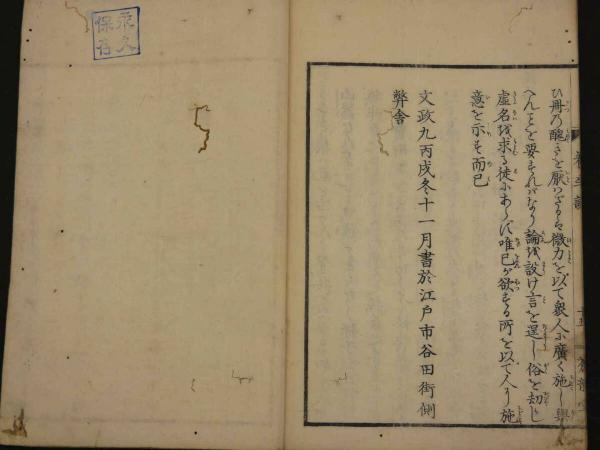 ひ冊乃醜きを厭はざるも微力を以て衆人に廣く施し與
へんことを要すればなり論を設け言を逞し俗を刧し
虚名を求る徒にあらず唯已が欲する所を以て人に施
意を示す而已
文政九丙戌冬十一月書於江戸市谷田街側
弊舎
永久
保存